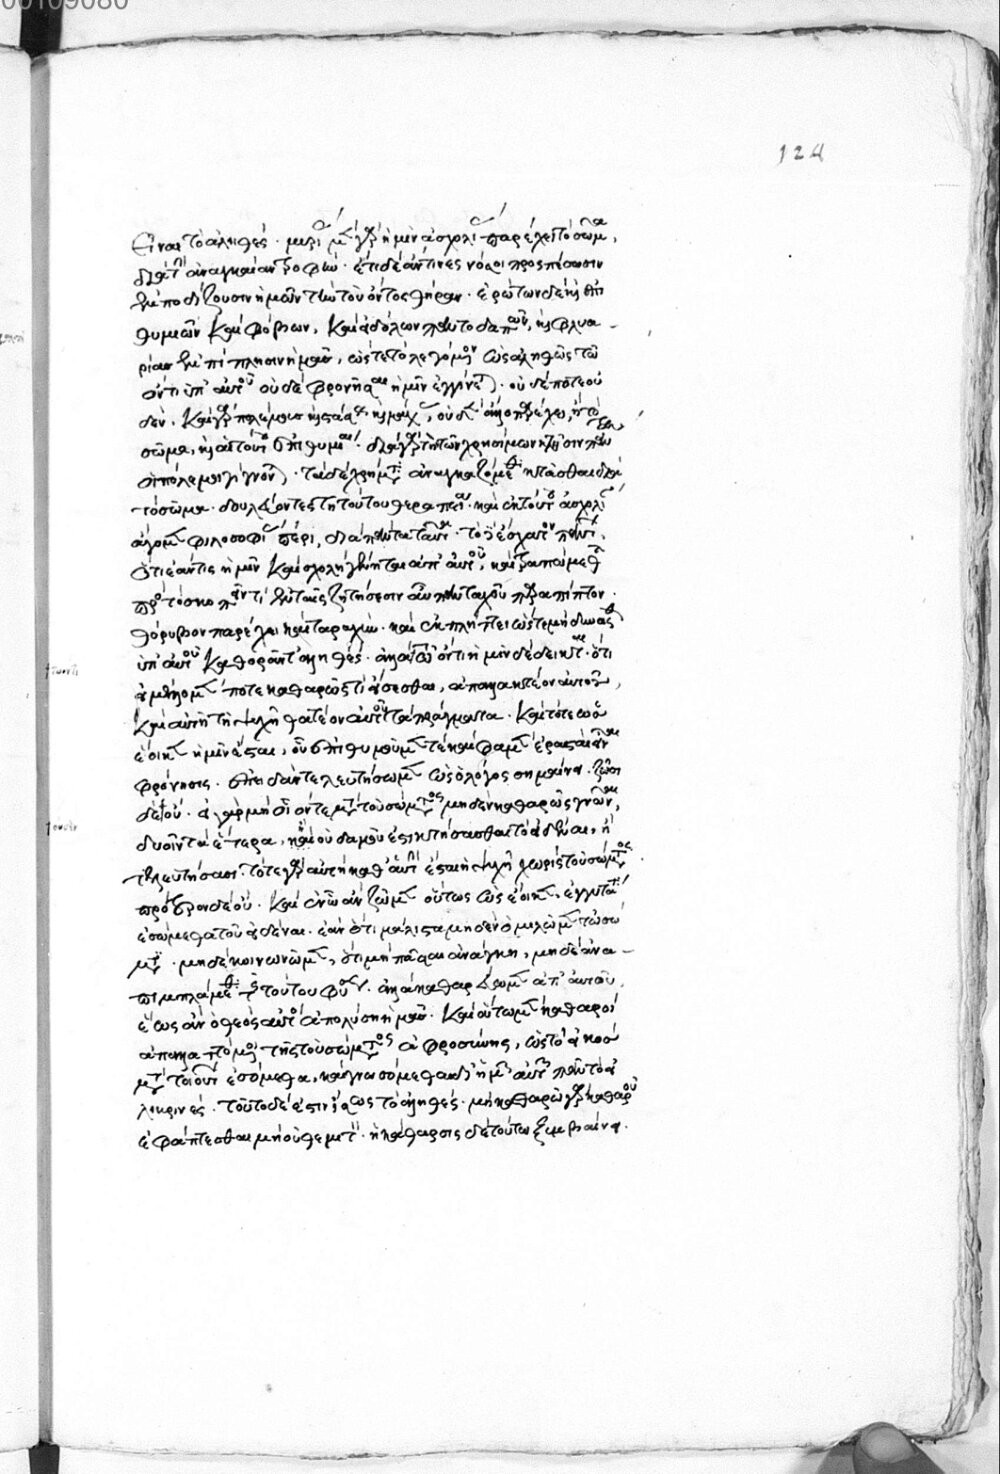 00109080
124
εἶναι τὸ ἀληθές. μυρίας μὲν γὰρ ἡμῖν ἀσχολίας παρέχει τὸ σῶμα,
διὰ τὴν ἀναγκαίαν τροφήν. ἔτι δὲ ἄν τινες νόσοι προσπέσωσιν
ἐμποδίζουσιν ἡμῶν τὴν τοῦ ὄντος θήραν. ἐρώτων δὲ καὶ ἐπι
θυμιῶν καὶ φόβων, καὶ εἰδώλων παντοδαπῶν, καὶ φλυα-
ρίας ἐμπίπλησιν ἡμᾶς, ὥστε τὸ λεγόμενον ὡς ἀληθῶς τῷ
ὄντι ὑπ' αὐτοῦ οὐδὲ φρονῆσαι ἡμῖν ἐγγίνεται. οὐδέποτε οὐ
δέν. καὶ γὰρ πολέμους καὶ στάσεις καὶ μάχας, οὐδὲν ἄλλο παρέχει, ἢ τὸ
σῶμα, καὶ αἱ τούτου ἐπιθυμίαι. διὰ γὰρ τὴν τῶν χρημάτων κτῆσιν πάντες
οἱ πόλεμοι γίγνονται. τὰ δὲ χρήματα ἀναγκαζόμεθα κτᾶσθαι διὰ
τὸ σῶμα. δουλεύοντες τῇ τούτου θεραπείᾳ. καὶ ἐκ τούτου ἀσχολίαν
ἄγομεν φιλοσοφίας πέρι, διὰ πάντα ταῦτα. τὸ δ' ἔσχατον πάντων,
ὅτι ἐάν τις ἡμῖν καὶ σχολὴ γένηται ἀπ' αὐτοῦ, καὶ τραπώμεθα
πρὸς τὸ σκοπεῖν τί, ἐν ταῖς ζητήσεσιν αὖ πανταχοῦ παραπίπτον.
θόρυβον παρέχει καὶ ταραχήν. καὶ ἐκπλήττει ὥστε μὴ δύνασθαι
ὑπ' αὐτοῦ καθορᾶν τἀληθές. ἀλλὰ τῷ ὄντι ἡμῖν δέδεικται. ὅτι
εἰ μέλλομεν ποτε καθαρῶς τι εἴσεσθαι, ἀπαλλακτέον αὐτοῦ,
καὶ αὐτῇ τῇ ψυχῇ θατέον αὐτὰ τὰ πράγματα. καὶ τότε ὡς
ἔοικεν ἡμῖν ἔσται, οὗ ἐπιθυμοῦμεν τε καὶ φαμὲν ἐρασταὶ εἶναι
φρόνησις. ἐπειδὰν τελευτήσωμεν ὡς ὁ λόγος σημαίνει. ζῶσι
δὲ οὔ. εἰ γὰρ μὴ οἷόν τε μετὰ τοῦ σώματος μηδὲν καθαρῶς γνῶναι,
δυοῖν τὰ ἕτερα, ἢ οὐδαμοῦ ἔστι κτήσασθαι τὸ εἰδέναι, ἢ
τελευτήσασι. τότε γὰρ αὐτὴ καθ' αὑτὴν ἔσται ἡ ψυχὴ χωρὶς τοῦ σώματος
πρότερον δὲ οὔ. καὶ ἐν ᾧ ἂν ζῶμεν οὕτως ὡς ἔοικεν, ἐγγυτάτω
ἐσόμεθα τοῦ εἰδέναι. ἐὰν ὅτι μάλιστα μηδὲν ὁμιλῶμεν τῷ σώ
ματι. μηδὲ κοινωνῶμεν, ὅτι μὴ πᾶσα ἀνάγκη, μηδὲ ἀνα-
πιμπλώμεθα τῆς τούτου φύσεως. ἀλλὰ καθαρεύωμεν ἀπ' αὐτοῦ,
ἕως ἂν ὁ θεὸς αὐτὸς ἀπολύσῃ ἡμᾶς. καὶ οὕτω μὲν καθαροὶ
ἀπαλλαττόμενοι τῆς τοῦ σώματος ἀφροσύνης, ὡς τὸ εἰκὸς
μετὰ τοιούτων ἐσόμεθα, καὶ γνωσόμεθα δι' ἡμῶν αὐτῶν πᾶν τὸ εἰ
λικρινές. τοῦτο δέ ἐστιν ἴσως τὸ ἀληθές. μὴ καθαρῷ γὰρ καθαροῦ
ἐφάπτεσθαι μὴ οὐ θεμιτὸν ᾖ. κάθαρσις δὲ τοῦτο ξυμβαίνει.